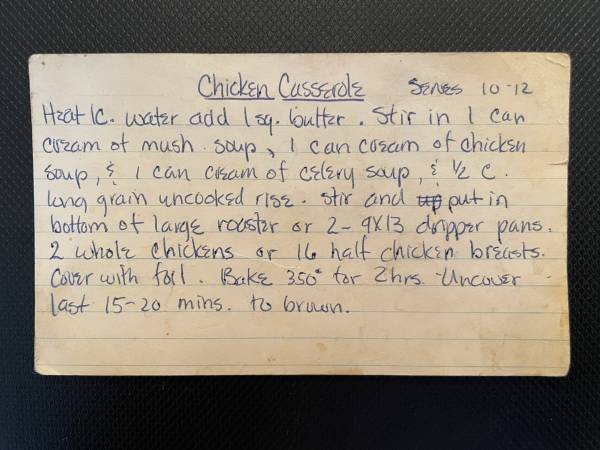 Chicken Casserole Serves 10-12
Heat 1c. water add 1 sq. butter. Stir in 1 can
cream of mush. soup, 1 can cream of chicken
soup, & 1 can cream of celery soup, & 1/2 c.
long grain uncooked rise. Stir and up put in
bottom of large roaster or 2-9X13 dripper pans.
2 whole chickens or 16 half chicken breasts.
Cover with foil. Bake 350° for 2 hrs. Uncover
last 15-20 mins. to brown.